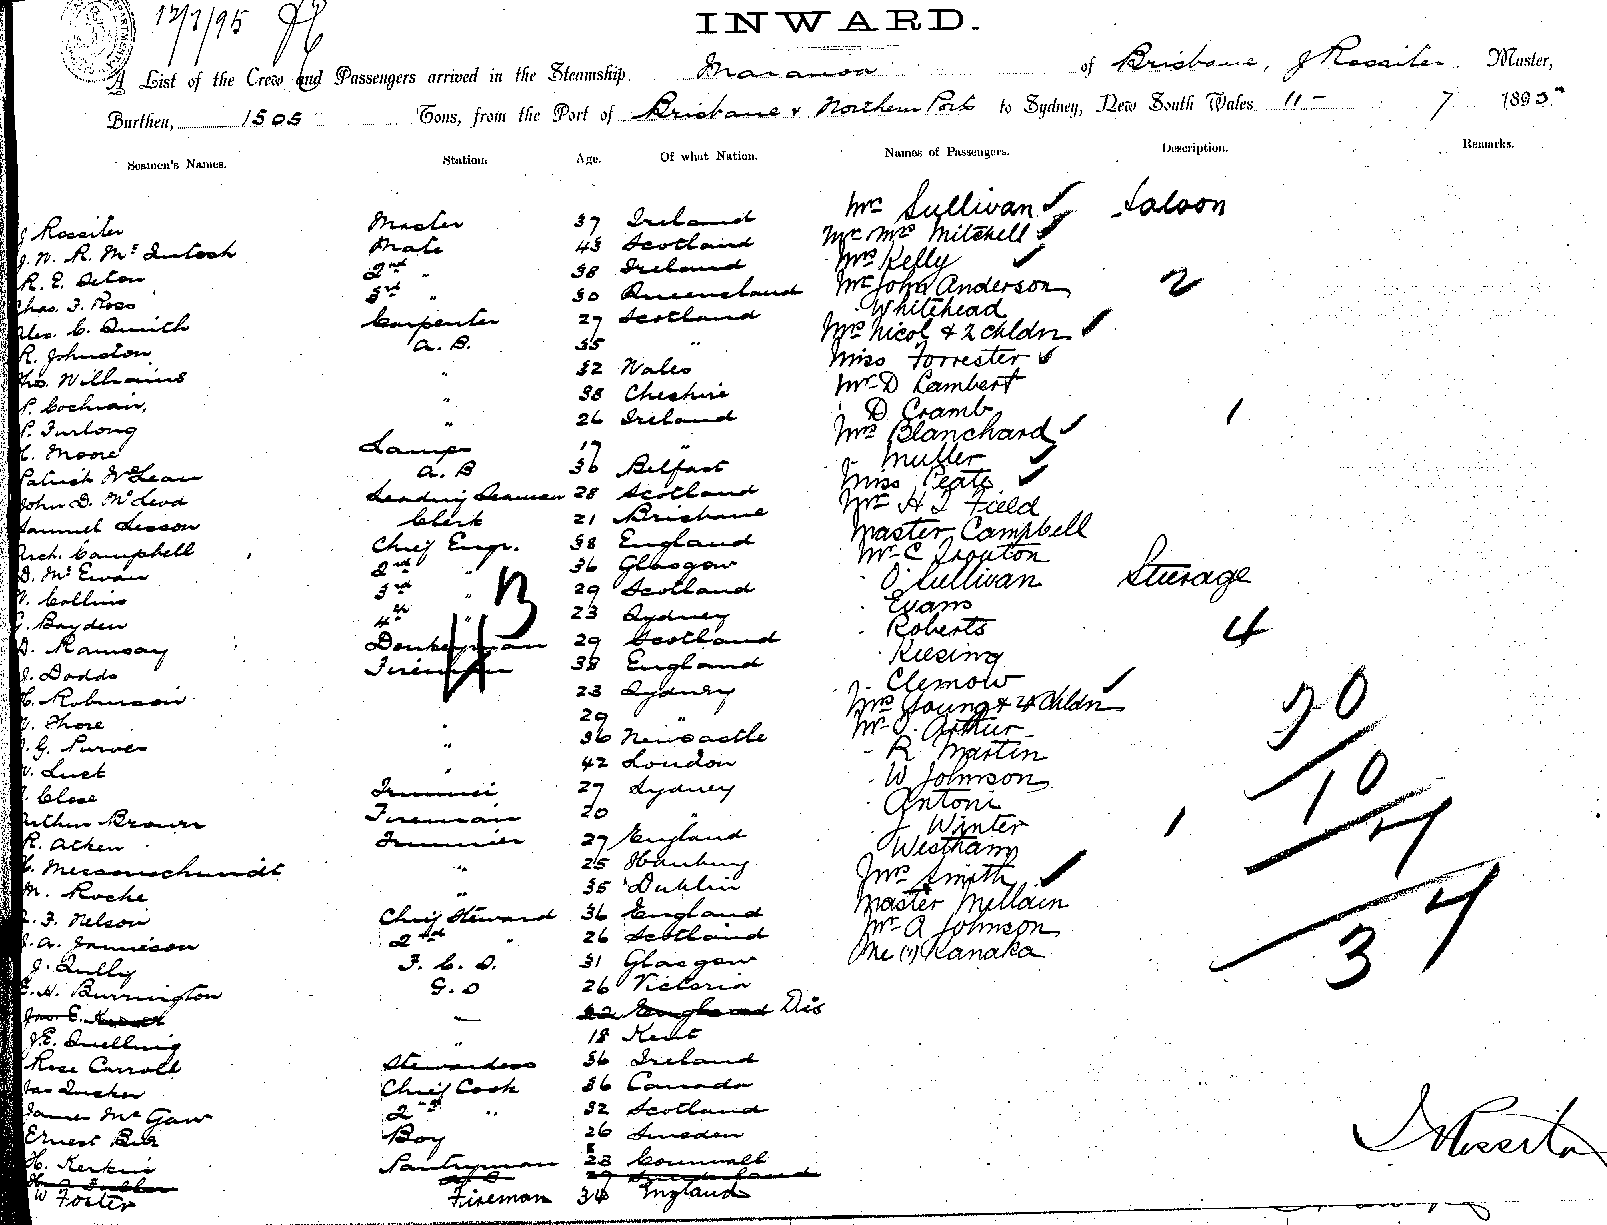 12/7/95
INWARD.
A List of the Crew and Passengers arrived in the Steamship Maranoa of Brisbane, J Rossiter Master,
Burthen, 1505 Tons, from the Port of Brisbane & Northern Ports to Sydney, New South Wales 11 - 7 1895
Seamen's Names. Station. Age. Of what Nation. Names of Passengers. Description. Remarks.
J Rossiter Master 37 Ireland
J. N. R. McIntosh Mate 43 Scotland
R. E. 2nd " 38 Ireland
Chas. F. Ross 3rd " 30 Queensland
Alex. C. Smith Carpenter 27 Scotland
R. Johnston A. B. 35 "
Thos. Williams " 32 Wales
P. Cochran, " 38 Cheshire
P. Furlong " 26 Ireland
Moore Lamps 17 "
Patrick McLean A. B 36 Belfast
John D. McLeod Leading Seaman 28 Scotland
Samuel Sisson Clerk 21 Brisbane
Arch. Campbell Chief Engr. 38 England
D. McEwan 2nd " 36 Glasgow
Collins 3rd " 29 Scotland
Boyden 4th " 23 Sydney
D. Ramsay Donkeyman 29 Scotland
J. Dodds Fireman 38 England
Robinson 23 Sydney
Shore " 29 "
G. Purves " 36 Newcastle
Lusk " 42 London
Close Trimmer 27 Sydney
Arthur Brown Fireman 20 "
R. Aitken Trimmer 27 England
Messerschmidt " 25 Hamburg
M. Roche " 35 Dublin
F. Nelson Chief Steward 36 England
J. A. Jamieson 2nd " 26 Scotland
J. Tully F. C. S. 31 Glasgow
H. Burrington G. S 26 Victoria
England Dis
J. E. Snelling " 18 Kent
Rose Carroll Stewardess 36 Ireland
Jas Tucker Chief Cook 36 Canada
James McGaw 2nd " 32 Scotland
Ernest Boy 26 Sweden
H. Kerkin Pantryman 23 Cornwall
W Foster Fireman 34 England
13
Mrs Sullivan ✓ Saloon
Mr Mrs Mitchell ✓
Mrs Kelly ✓
Mr John Anderson 2
" Whitehead
Mrs Nicol & 2 chldn ✓
Miss Forrester ✓
Mr D Lambert
" D Cramb 1
Mrs Blanchard ✓
" Muller ✓
Miss Peate ✓
Mr H I Field
Master Campbell
Mr C Trouton
" O'Sullivan Steerage
" Evans
" Roberts 4
" Kiesing
" Clemow
Mrs Young & 4 chldn ✓
Mr J. Arthur
" R Martin
" W Johnson
" Antoni
" J Winter 1
" Westham
Mrs Smith ✓
Master Mellain
Mr A Johnson
One (1) Kanaka
20
10
4
34
J Rossiter